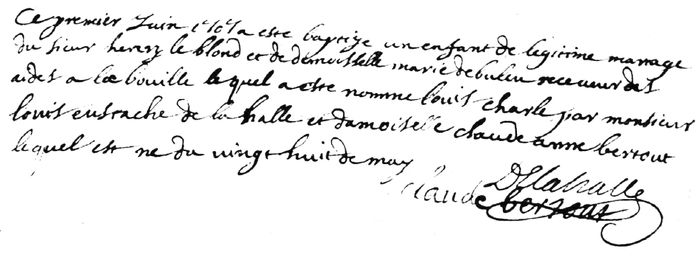 Ce premier Juin 1707 a esté baptize un enfant de legitime mariage
du sieur henry le blond et de demoiselle marie de buleu receveur des
aides a la bouille lequel a este nomme louis charle par monsieur
louis eustache de la halle et damoiselle claude anne bertout
lequel est ne du vingt huit de may
Delahalle
Claude bertout